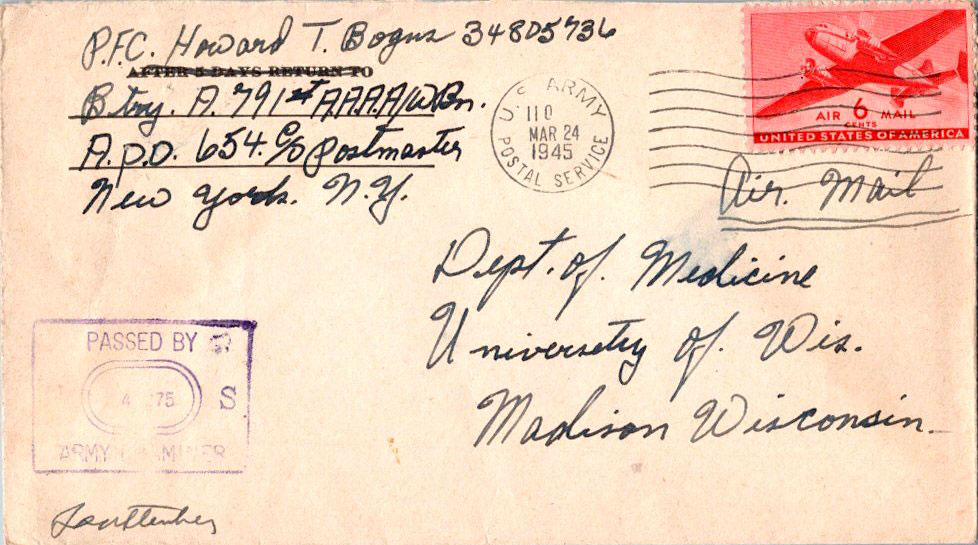 P.F.C. Howard T. Bogus 34805736
AFTER 5 DAYS RETURN TO
Btry. A. 791st A.A.A. A/W Bn.
A.P.O. 654. c/o Postmaster
New York. N.Y.
U.S. ARMY
110
MAR 24
1945
POSTAL SERVICE
AIR 6 MAIL
CENTS
UNITED STATES OF AMERICA
Air. Mail
Dept. of. Medicine
Universety of. Wis.
Madison Wisconsin.
PASSED BY
S
ARMY EXAMINER